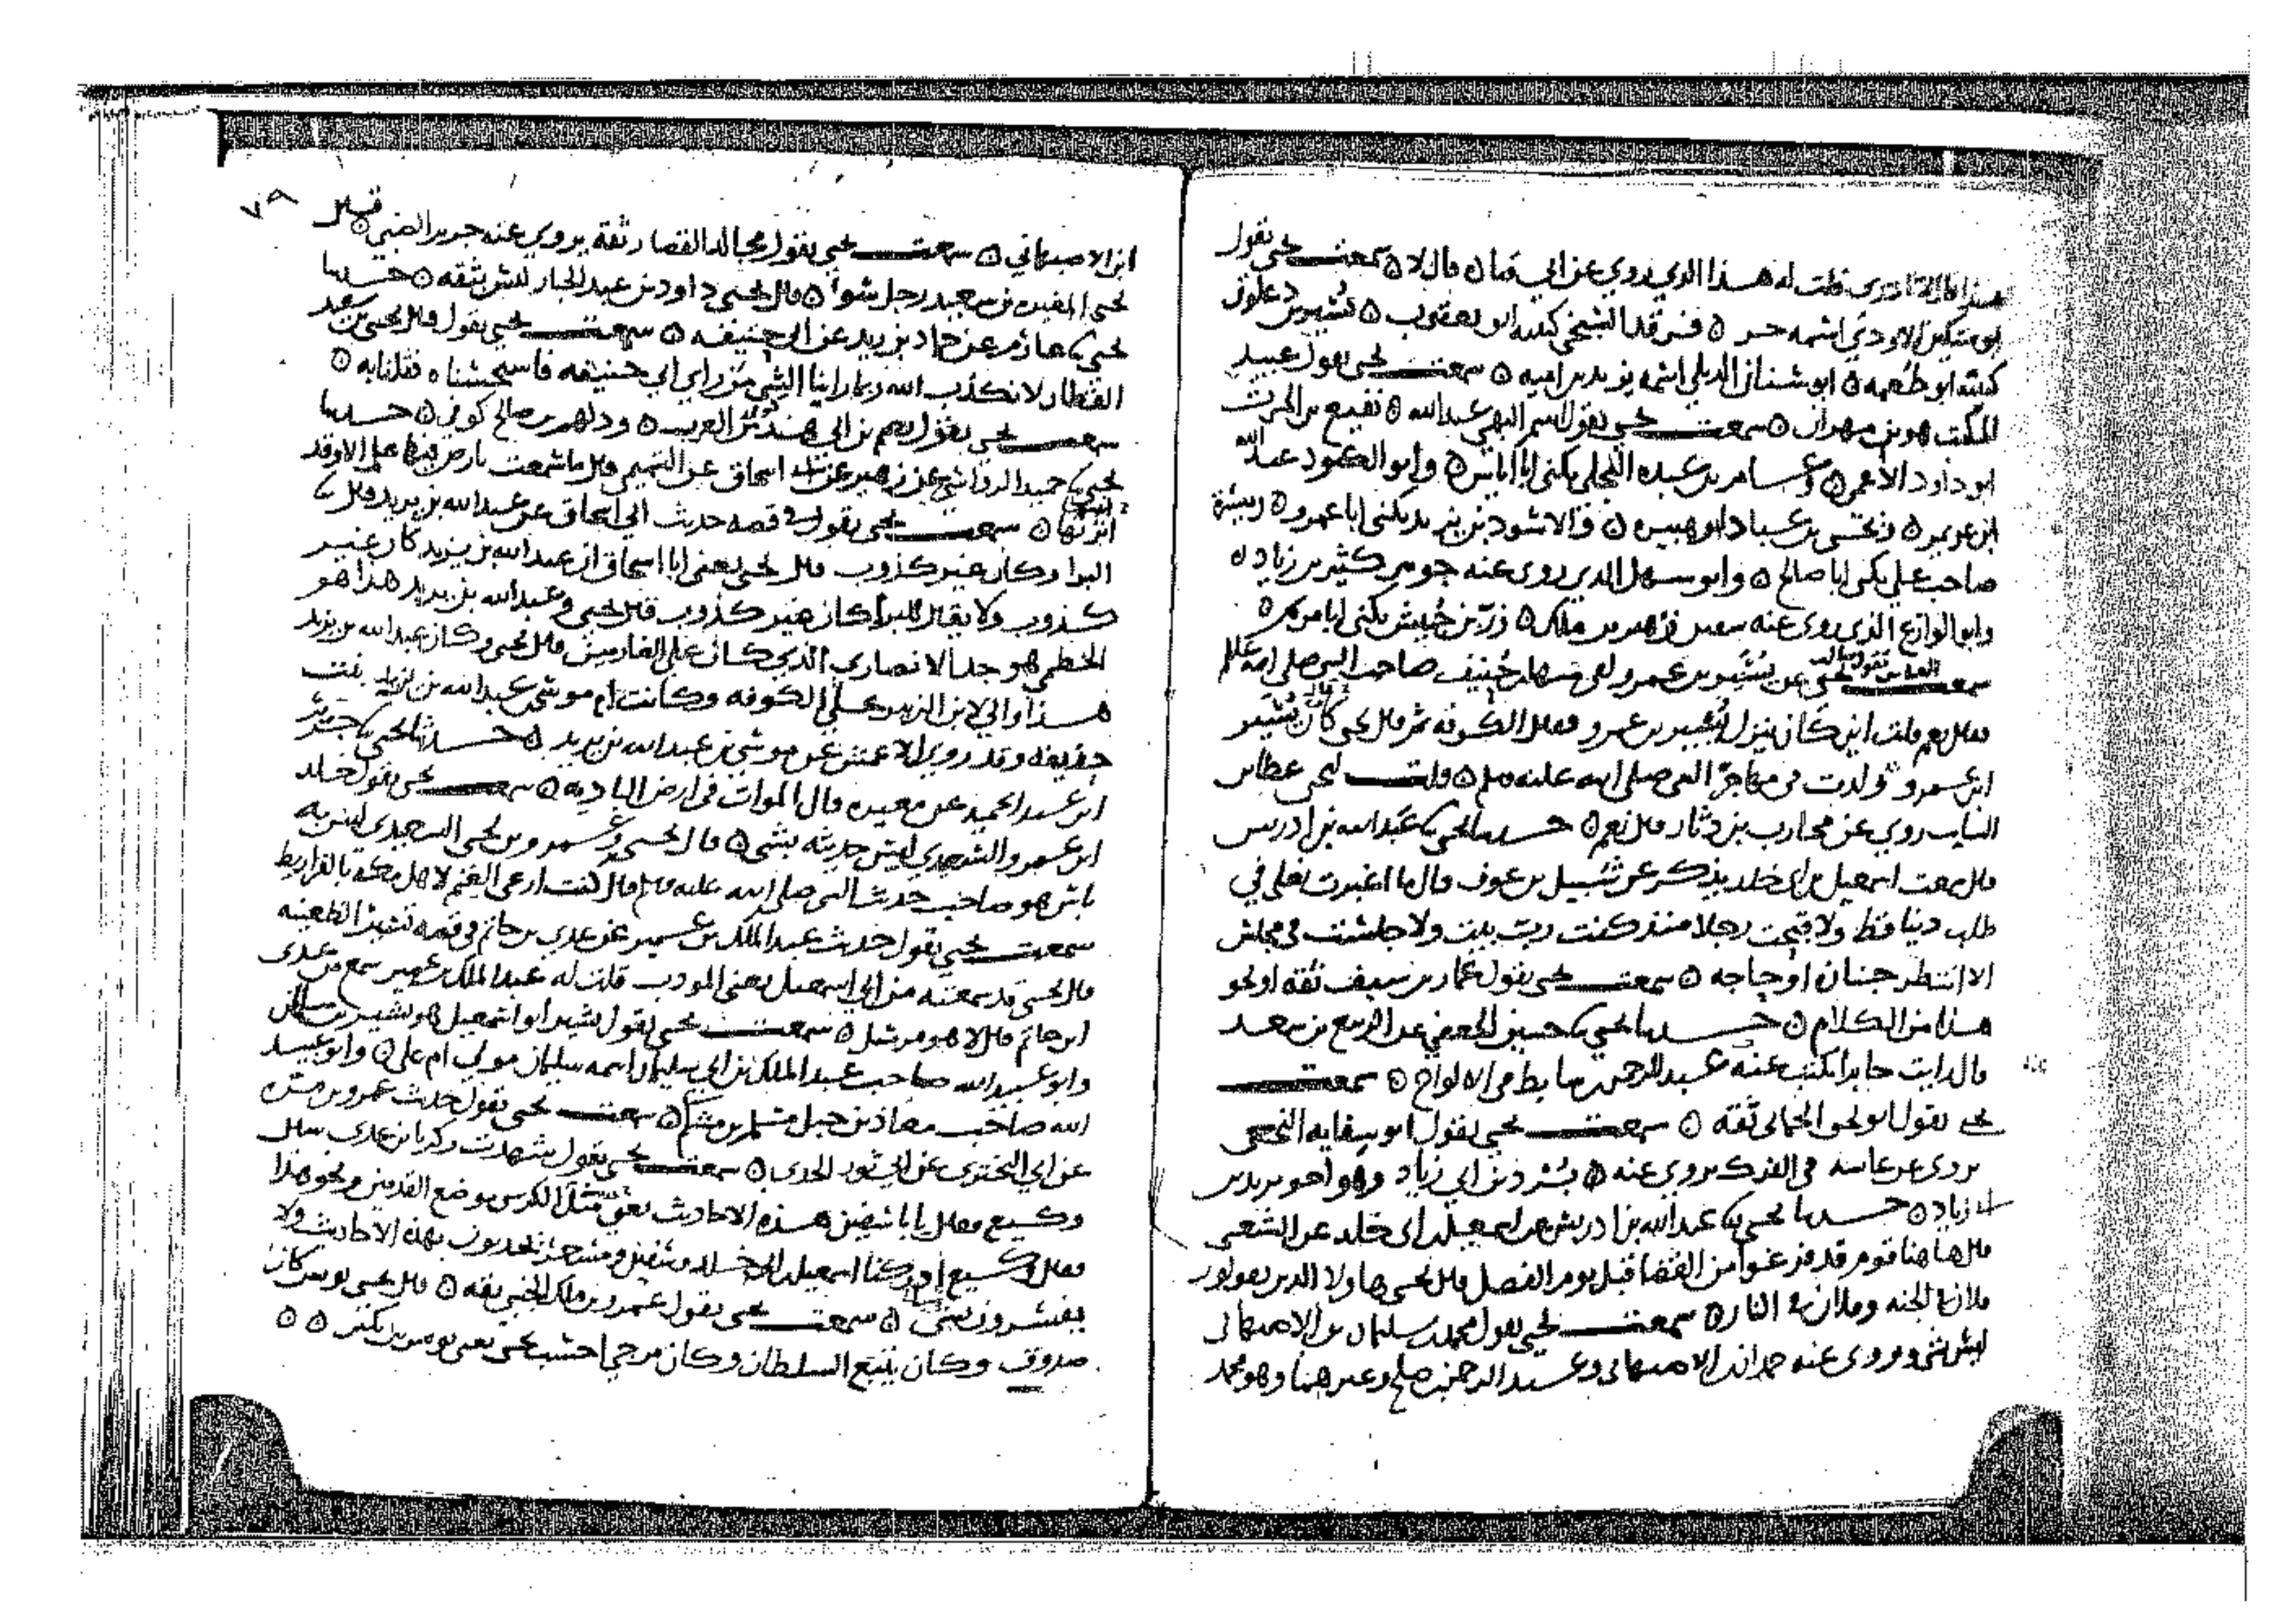 هذا قال لا ادري قلت له هذا الذي يروي عن ابي قال لا سمعت يحيى يقول
ابو مسكين الاودي اسمه حر فرقد السبخي كنيته ابو يعقوب نسير بن ذعلوق
كنيته ابو طعمه ابو سنان الديلي اسمه يزيد بن اميه سمعت يحيى يقول عبيد
المكتب هو بن مهران سمعت يحيى يقول اسم البهي عبد الله نفيع بن الحرث
ابو داود الاعمى وعامر بن عبده البجلي يكنى ابا اياس وابو الكنود عبد الله
ابن عويمر وتحيى بن عباد ابو هبيره والاسود بن يزيد يكنى ابا عمرو
صاحب علي يكنى ابا صالح وابو سهل الذي روى عنه جويبر كثير بن زياد
وابو الوازع الذي روى عنه زهير بن ملك زر بن حبيش يكنى ابا مريم
سمعت العباس يقول سالت يحيى عن بشير بن عمرو لقي سهل بن حنيف صاحب النبي صلى الله عليه
فقال نعم قلت اين كان ينزل يسير بن عمرو فقال الكوفه ثم قال يحيى قال يسير
ابن عمرو ولدت في مهاجر النبي صلى الله عليه وسلم قلت ليحيى عطا بن
السايب روى عن محارب بن دثار قال نعم حدثنا يحيى نا عبد الله بن ادريس
قال سمعت اسمعيل بن ابي خلد يذكر عن شبيل بن عوف قال ما اغبرت نعلي في
طلب دنيا قط ولا رجلا منذ كنت رب بيت ولا جلست في مجلس
الا انتظر جنازه او حاجه سمعت يحيى يقول عمار بن سيف ثقه او نحو
هذا من الكلام حدثنا يحيى نا حسين الجعفي عن الربيع بن سعد
قال رايت جابرا يكتب عند عبد الرحمن بن سابط في الالواح سمعت
يحيى يقول ابو يحيى الحماني ثقه سمعت يحيى يقول ابو سقايه النخعي
يروي عن في الفرك يروي عنه برد بن ابي زياد وهو اخو يزيد بن
ابي زياد حدثنا يحيى نا عبد الله بن ادريس عن اسمعيل بن ابي خلد عن الشعبي
قال ها هنا قوم قد فرغوا من القضا قبل يوم الفصل قال يحيى هاولا الذين يقولون
فلان في الجنه وفلان في النار سمعت يحيى يقول محمد بن سليمان بن الاصبهاني
ليس بشي يروي عنه ابن الاصبهاني وعبد الرحمن بن صلح وغيرهما وهو محمد
٧٨
ابن الاصبهاني سمعت يحيى يقول مجالد القصار ثقة يروي عنه جرير الضبي قيل
ليحيى المغيره بن سعيد رجل سوء قال يحيى داود بن عبد الجبار ليس بثقه حدثنا
يحيى نا عازم عن حماد بن زيد عن ابي حنيفه سمعت يحيى يقول قال يحيى بن سعيد
القطان لا نكذب الله ربما راينا الشي من راي ابي حنيفه فاستحسناه فقلنا به
سمعت يحيى يقول نعيم بن ابي هند من العرب ودلهم بن صالح كوفي حدثنا
يحيى نا حميد الرواسي عن زهير عن ابي اسحاق عن التميمي قال ما سمعت بارض فيها علم الا وقد
اتيتها سمعت يحيى يقول في قصه حديث ابي اسحاق عن عبد الله بن يزيد قال نا
البرا وكان غير كذوب قال يحيى يعني ابا اسحاق ان عبد الله بن يزيد كان غير
كذوب ولا يقال للبرا كان غير كذوب قال يحيى وعبد الله بن يزيد هذا هو
الخطمي هو جد الانصاري الذي كان علي القادسيه قال يحيى وكان عبد الله بن يزيد
هذا والي لابن الزبير على الكوفه وكانت ام موسى بن عبد الله بن يزيد بنت
حذيفه وقد روى الاعمش عن موسى بن عبد الله بن يزيد حدثنا يحيى نا جرير
ابن عبد الحميد عن مغيره قال الموات في ارض الباديه سمعت يحيى يقول خلد
ابن عمرو السعيدي ليس حديثه بشي قال يحيى وعمرو بن يحيى السعيدي ليس به
باس هو صاحب حديث النبي صلى الله عليه وسلم قال كنت ارعى الغنم لاهل مكة بالقراريط
سمعت يحيى يقول حديث عبد الملك بن عمير عن عدي بن حاتم في قصه تسير الظعينه
قال يحيى قد سمعته من ابي اسمعيل يعني المودب قلت له عبد الملك بن عمير سمع من عدي
ابن حاتم قال لا هو مرسل سمعت يحيى يقول بشير ابو اسمعيل هو بشير بن سلمان
وابو عبيد الله صاحب عبد الملك بن ابي سليمان اسمه سليمان مولى ام علي وابو عبيد
الله صاحب معاذ بن جبل مسلم بن مشكم سمعت يحيى يقول حديث عمرو بن مره
عن ابي البختري عن ابي ثور الحداني سمعت يحيى يقول شهدت زكريا بن عدي سال
وكيع فقال يا ابا سفين هذه الاحاديث يعني مثل الكرسي موضع القدمين ونحو هذا
فقال وكيع ادركنا اسمعيل بن ابي خلد وسفين ومسعرا يحدثون بهذه الاحاديث ولا
يفسرون شي سمعت يحيى يقول عمرو بن ملك الجنبي ثقه قال يحيى يونس كان
صدوق وكان يتبع السلطان وكان مرجي احسب يحيى يعني يونس بن بكير